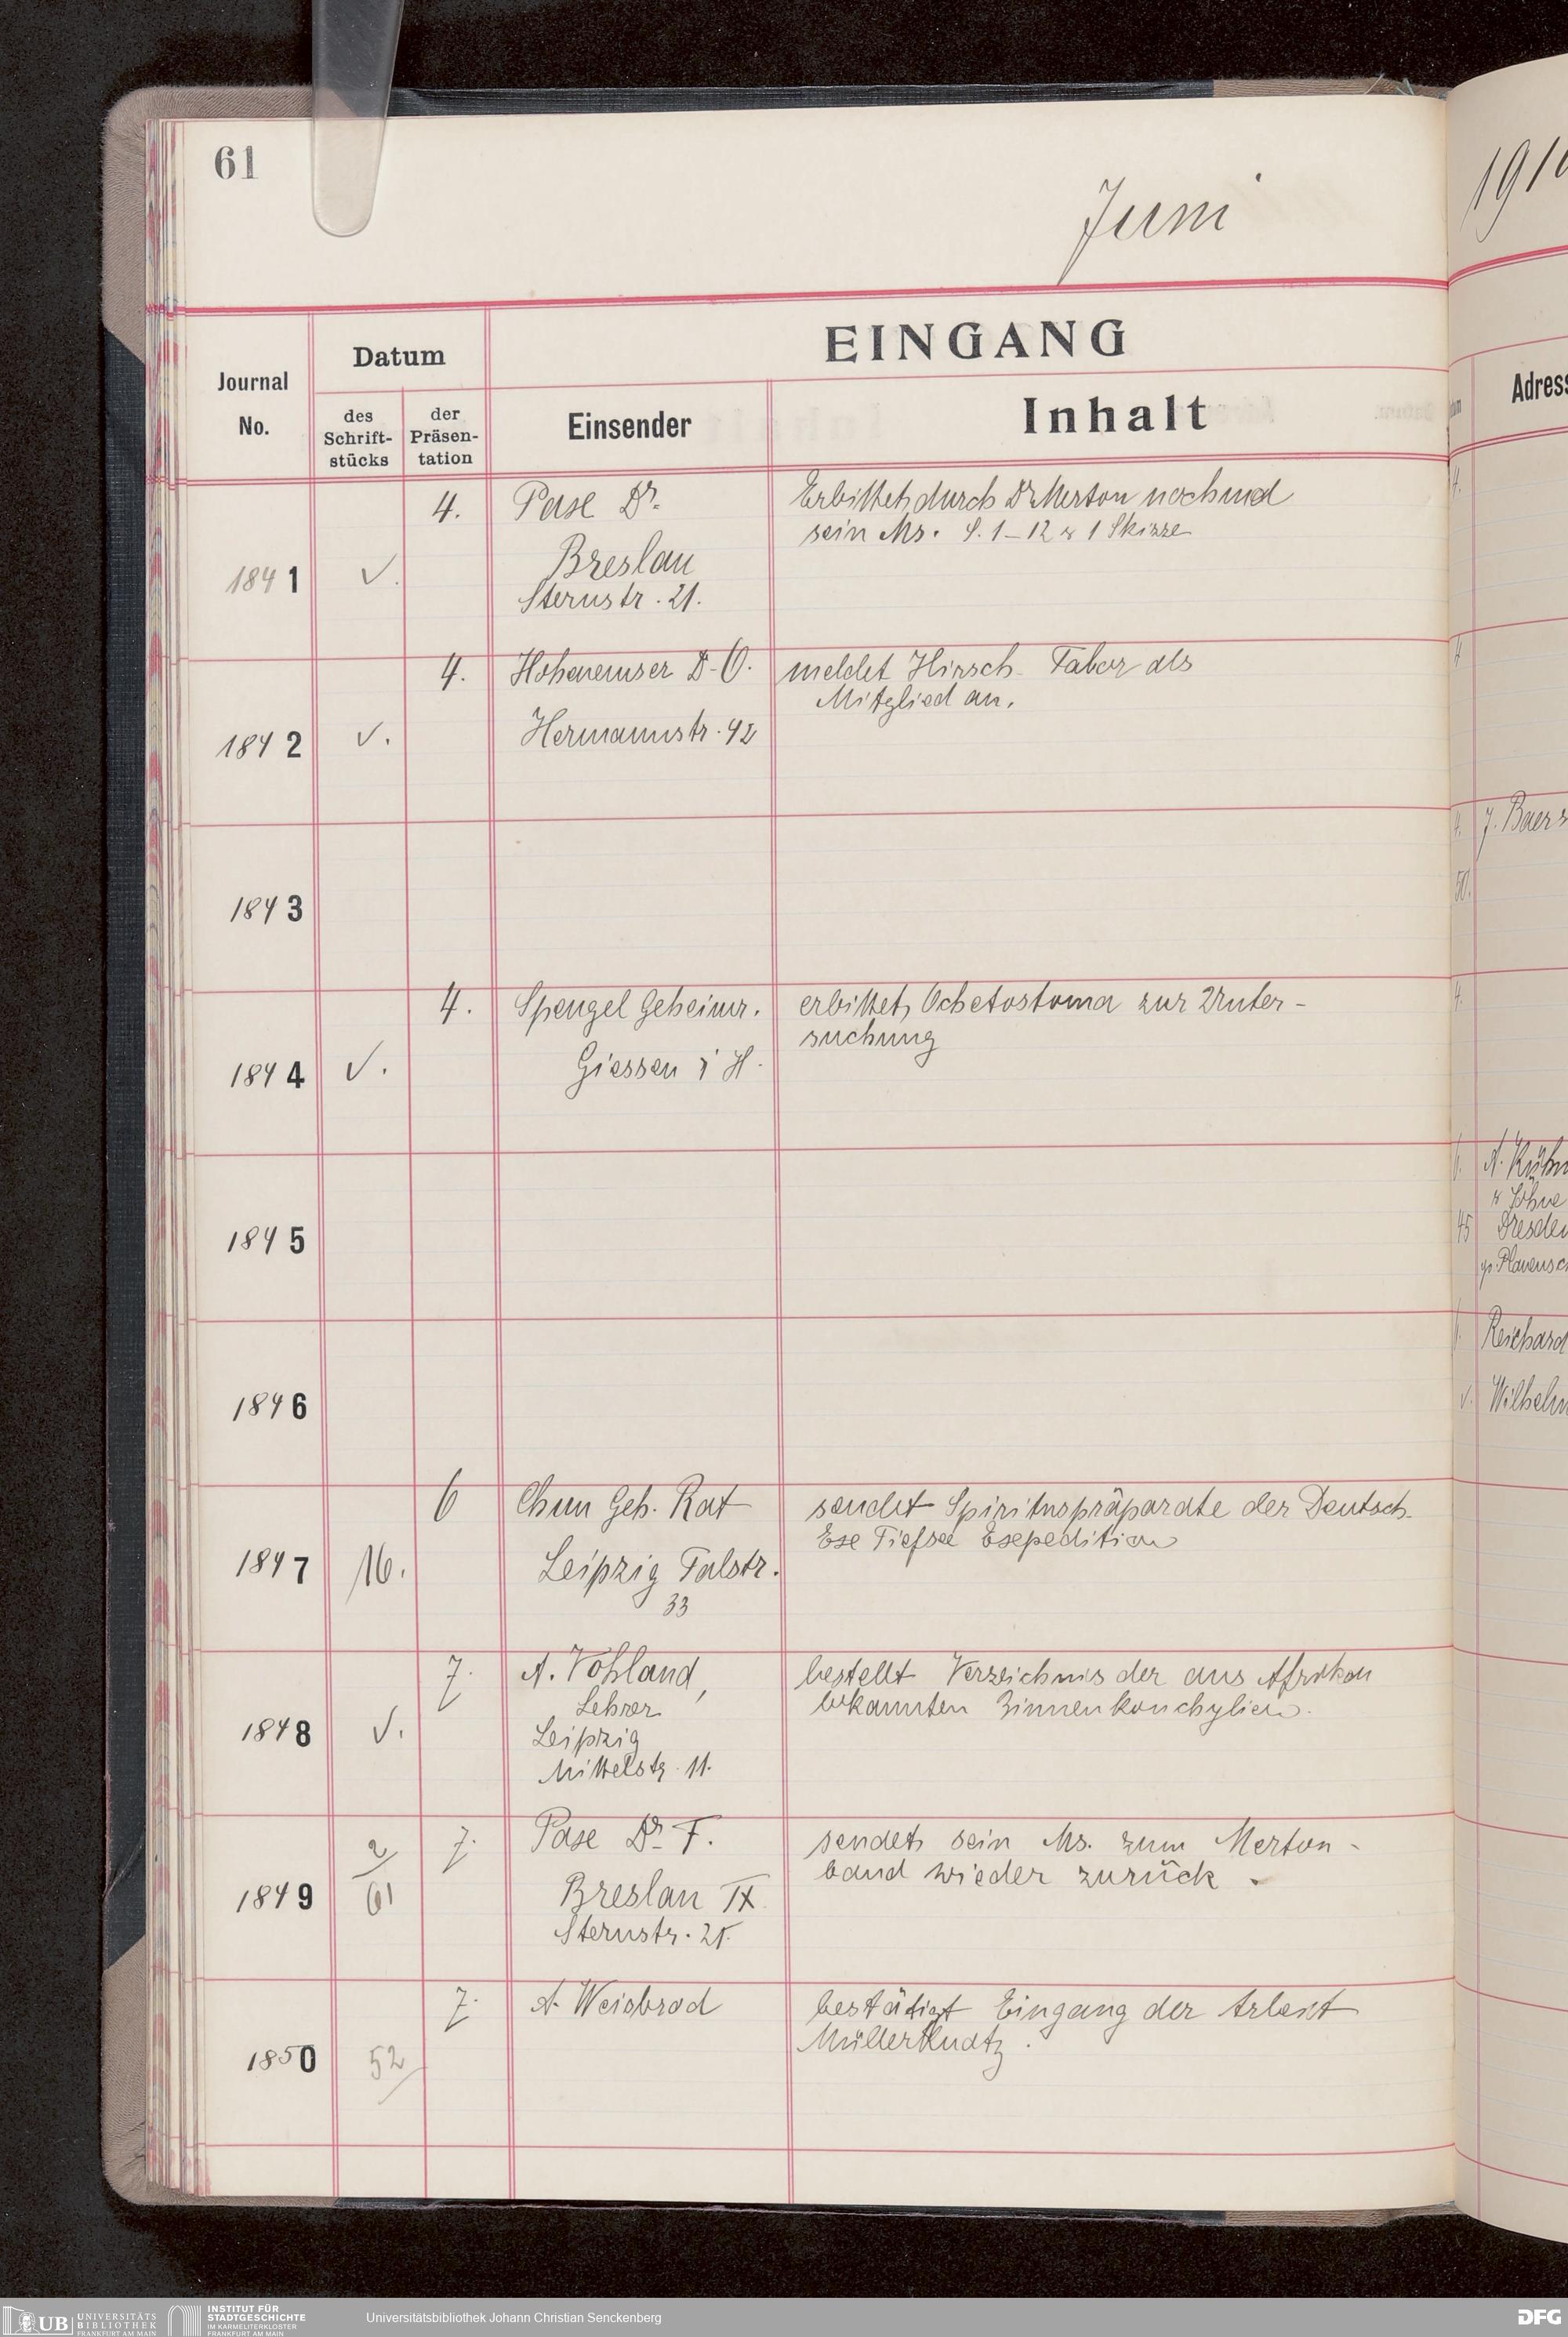 61
Juni
Journal
No.
Datum
des
Schrift-
stücks
der
Präsen-
tation
EINGANG
Einsender
Inhalt
1841
4.
Pase Dr.
Breslau
Sternstr. 21.
Erbittet durch Dr Merton nochmal
sein Ms. S. 1–12 & 1 Skizze
1842
4.
Hohenemser D. O.
Hermannstr. 42
meldet Hirsch Tabor als
Mitglied an.
1843
1844
4.
Spengel Geheimr.
Giessen i H.
erbittet Ochetostoma zur Unter-
suchung
1845
1846
1847
16.
6
Chun Geh. Rat
Leipzig Talstr.
33
sendet Spirituspräparate der Deutsch.
Tiefsee
1848
7.
A. Vohland,
Lehrer
Leipzig
Mittelstr. 11.
bestellt Verzeichnis der aus Afrika
bekannten Binnenkonchylien.
1849
2/61
7.
Pase Dr. F.
Breslau IX
Sternstr. 21.
sendet sein Ms. zum Merton-
band wieder zurück.
1850
52
7.
A. Weisbrod
bestätigt Eingang der Arbeit
Müller Knatz.
Adress
J. Baer
50.
A. Kühn
& Söhne
45
Dresden
Reichard
Wilhelm
UB
UNIVERSITÄTS
BIBLIOTHEK
FRANKFURT AM MAIN
INSTITUT FÜR
STADTGESCHICHTE
IM KARMELITERKLOSTER
FRANKFURT AM MAIN
Universitätsbibliothek Johann Christian Senckenberg
DFG